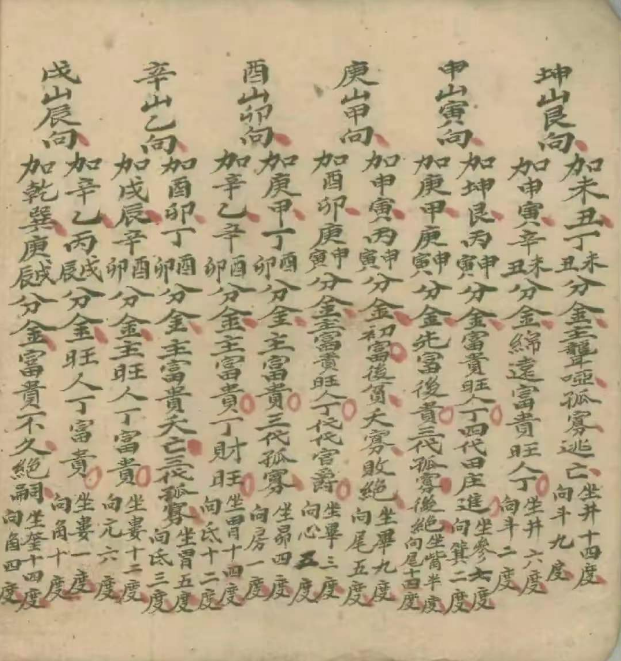 坤山艮向
加未丑丁未丑分金主聾啞孤寡逃亡坐井十四度向斗九度
加申寅辛未丑分金綿遠富貴旺人丁坐井六度向斗二度
申山寅向
加坤艮丙申寅分金富貴旺人丁四代田庄進坐參六度向箕二度
加庚甲庚申寅分金先富後貴三代孤寡後絕坐觜半度向尾十四度
庚山甲向
加申寅丙申寅分金初富後貧夭寡敗絕坐畢九度向尾五度
加酉卯庚申寅分金主富貴旺人丁代代官爵坐畢三度向心五度
酉山卯向
加庚甲丁酉卯分金主富貴三代孤寡坐昴四度向房一度
加辛乙辛酉卯分金主富貴丁財旺坐胃十四度向氐十二度
辛山乙向
加酉卯丁酉卯分金主富貴夭亡三代孤寡坐胃五度向氐三度
加戊辰辛酉卯分金主旺人丁富貴坐婁十二度向亢六度
戌山辰向
加辛乙丙戌辰分金旺人丁富貴坐婁一度向角十度
加乾巽庚戌辰分金富貴不久絕嗣坐奎十四度向角四度